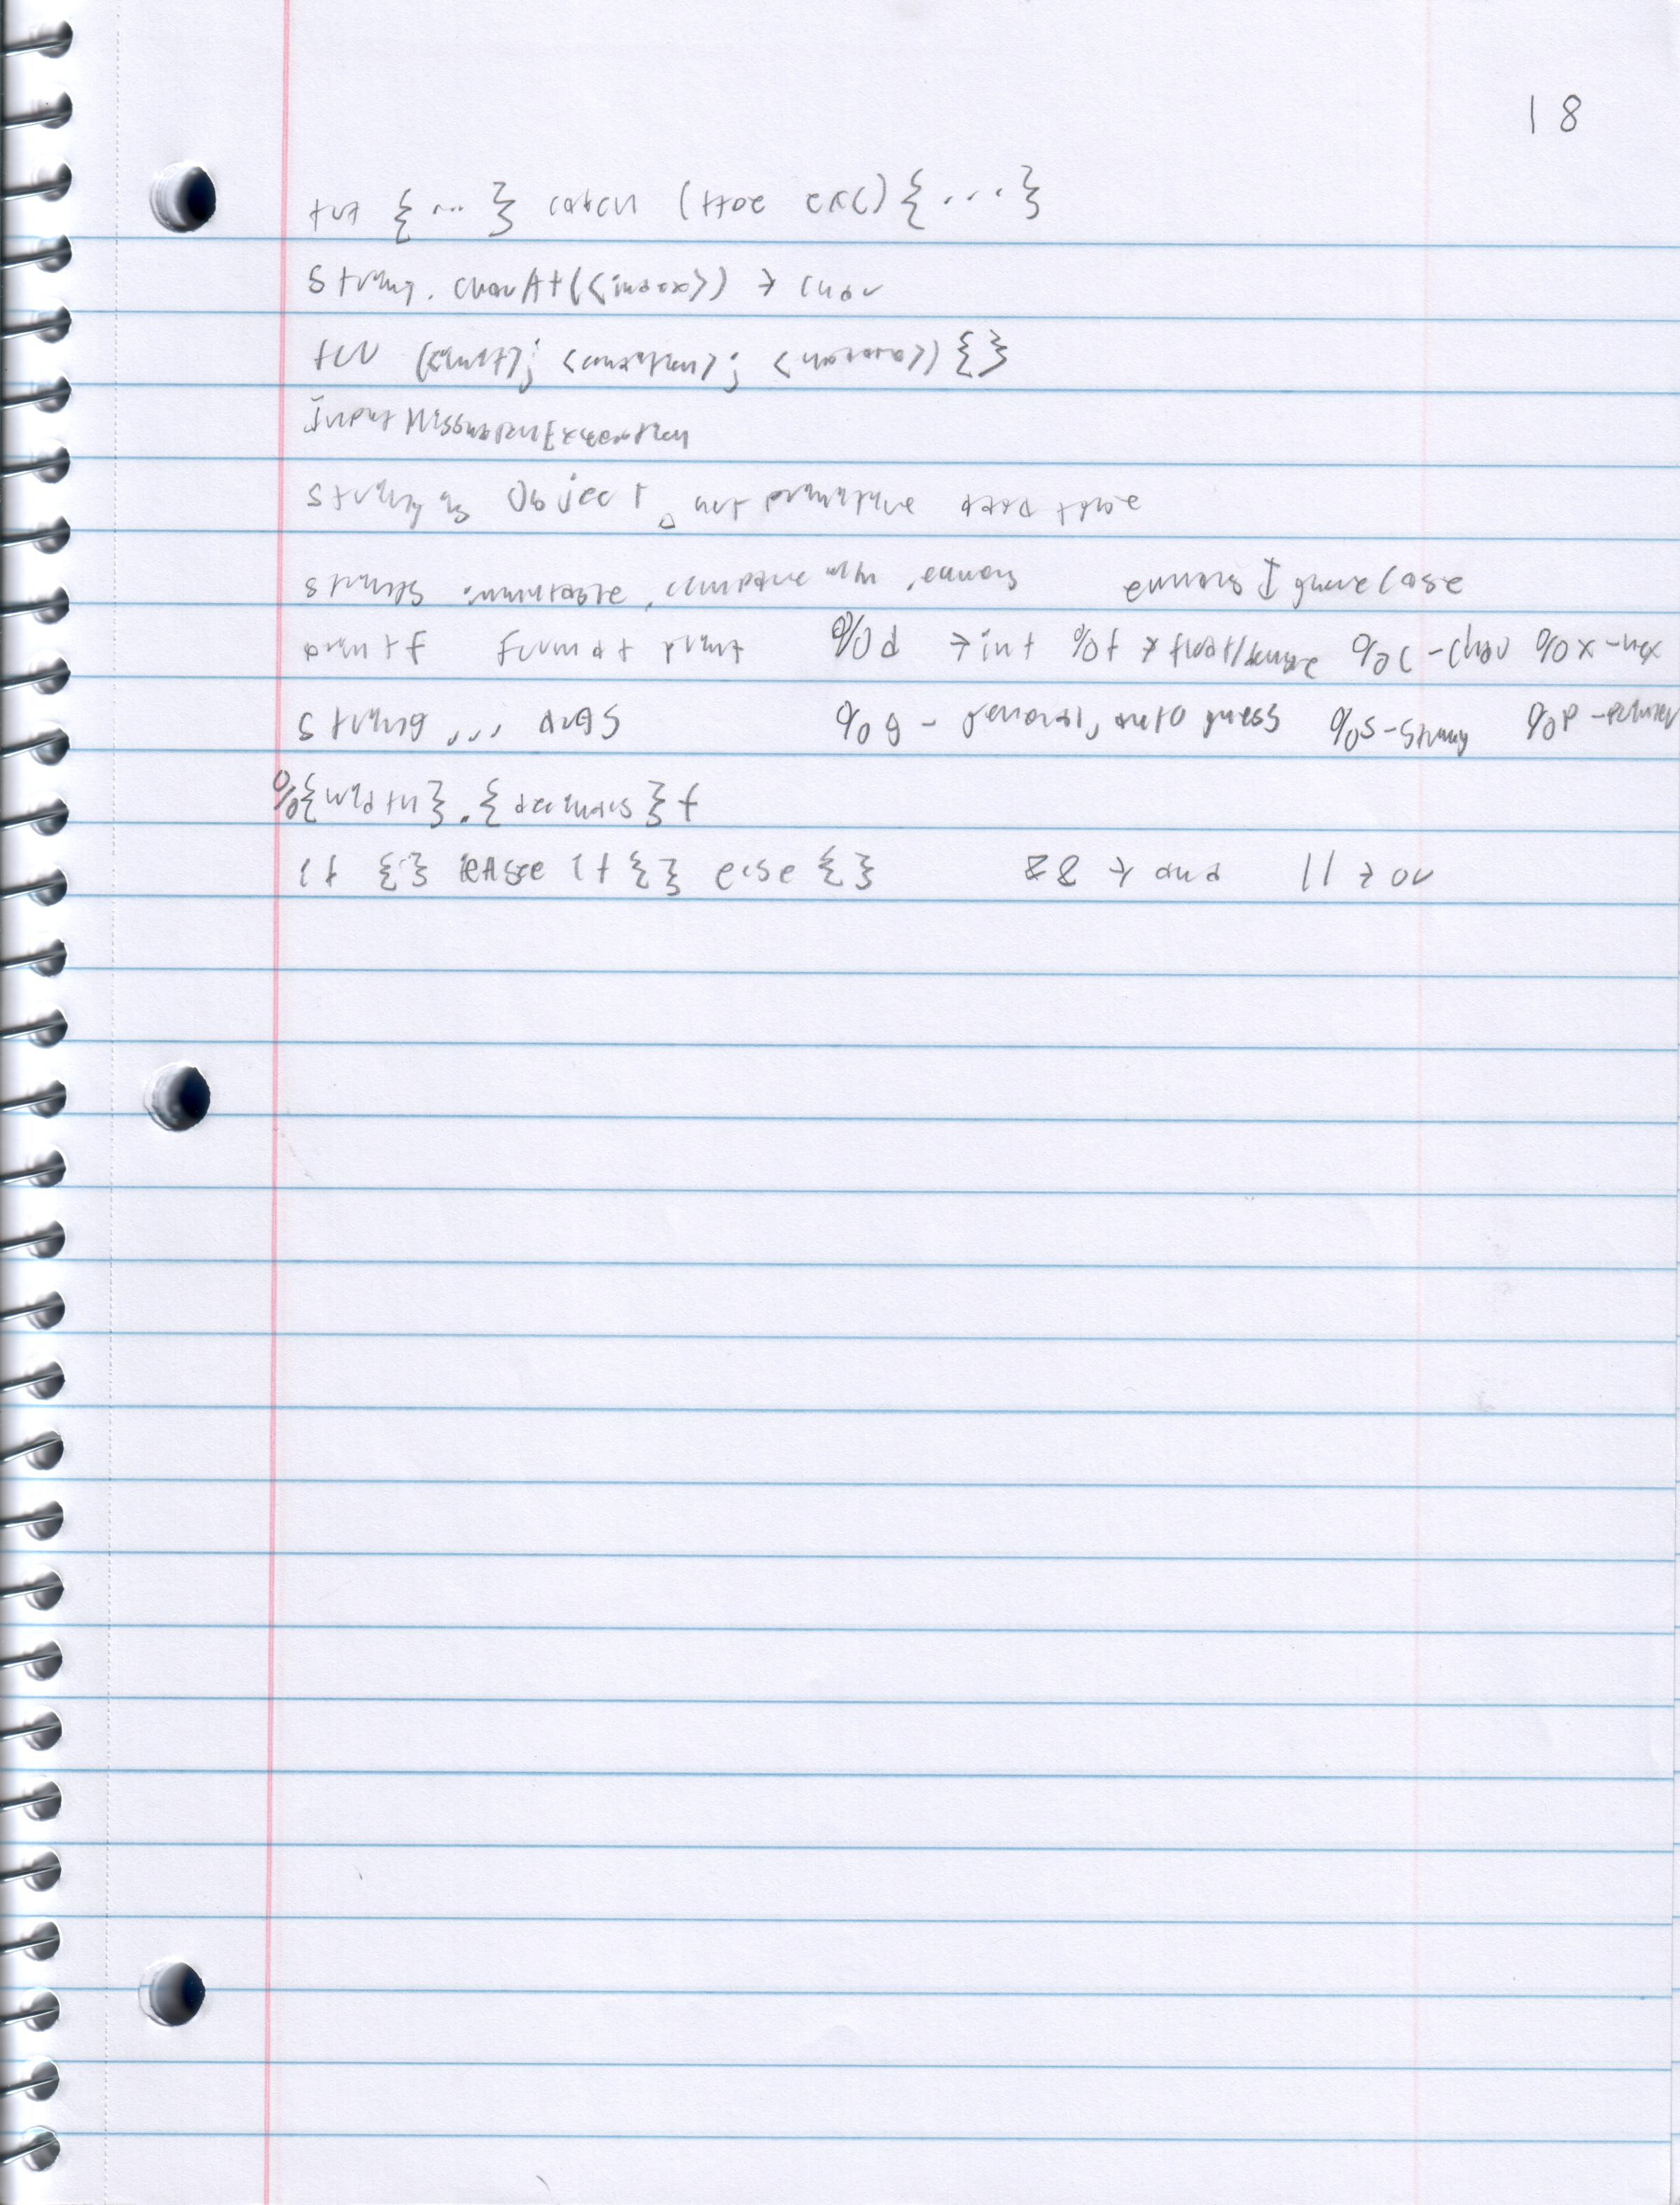 18
try {...} catch (type exc) {...}
String.charAt(<index>) → char
for (<init>; <condition>; <update>) {}
InputMismatchException
String is Object, not primitive data type
strings immutable, compare with .equals equalsIgnoreCase
printf format print %d → int %f → float/double %c - char %x - hex
String ... args %g - general, auto guess %s - string %p - pointer
%{width}.{decimals}f
if {} else if {} else {} && → and || → or